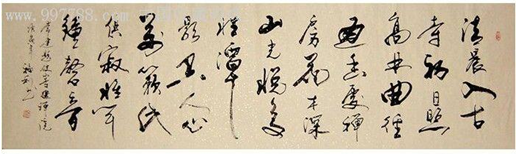 清晨入古
寺初日照
高林曲徑
通幽處禪
房花木深
山光悦鳥
性潭
影空人心
萬籟此
俱寂惟聞
鐘磬音
常建題破山寺後禪院
www.997788.com